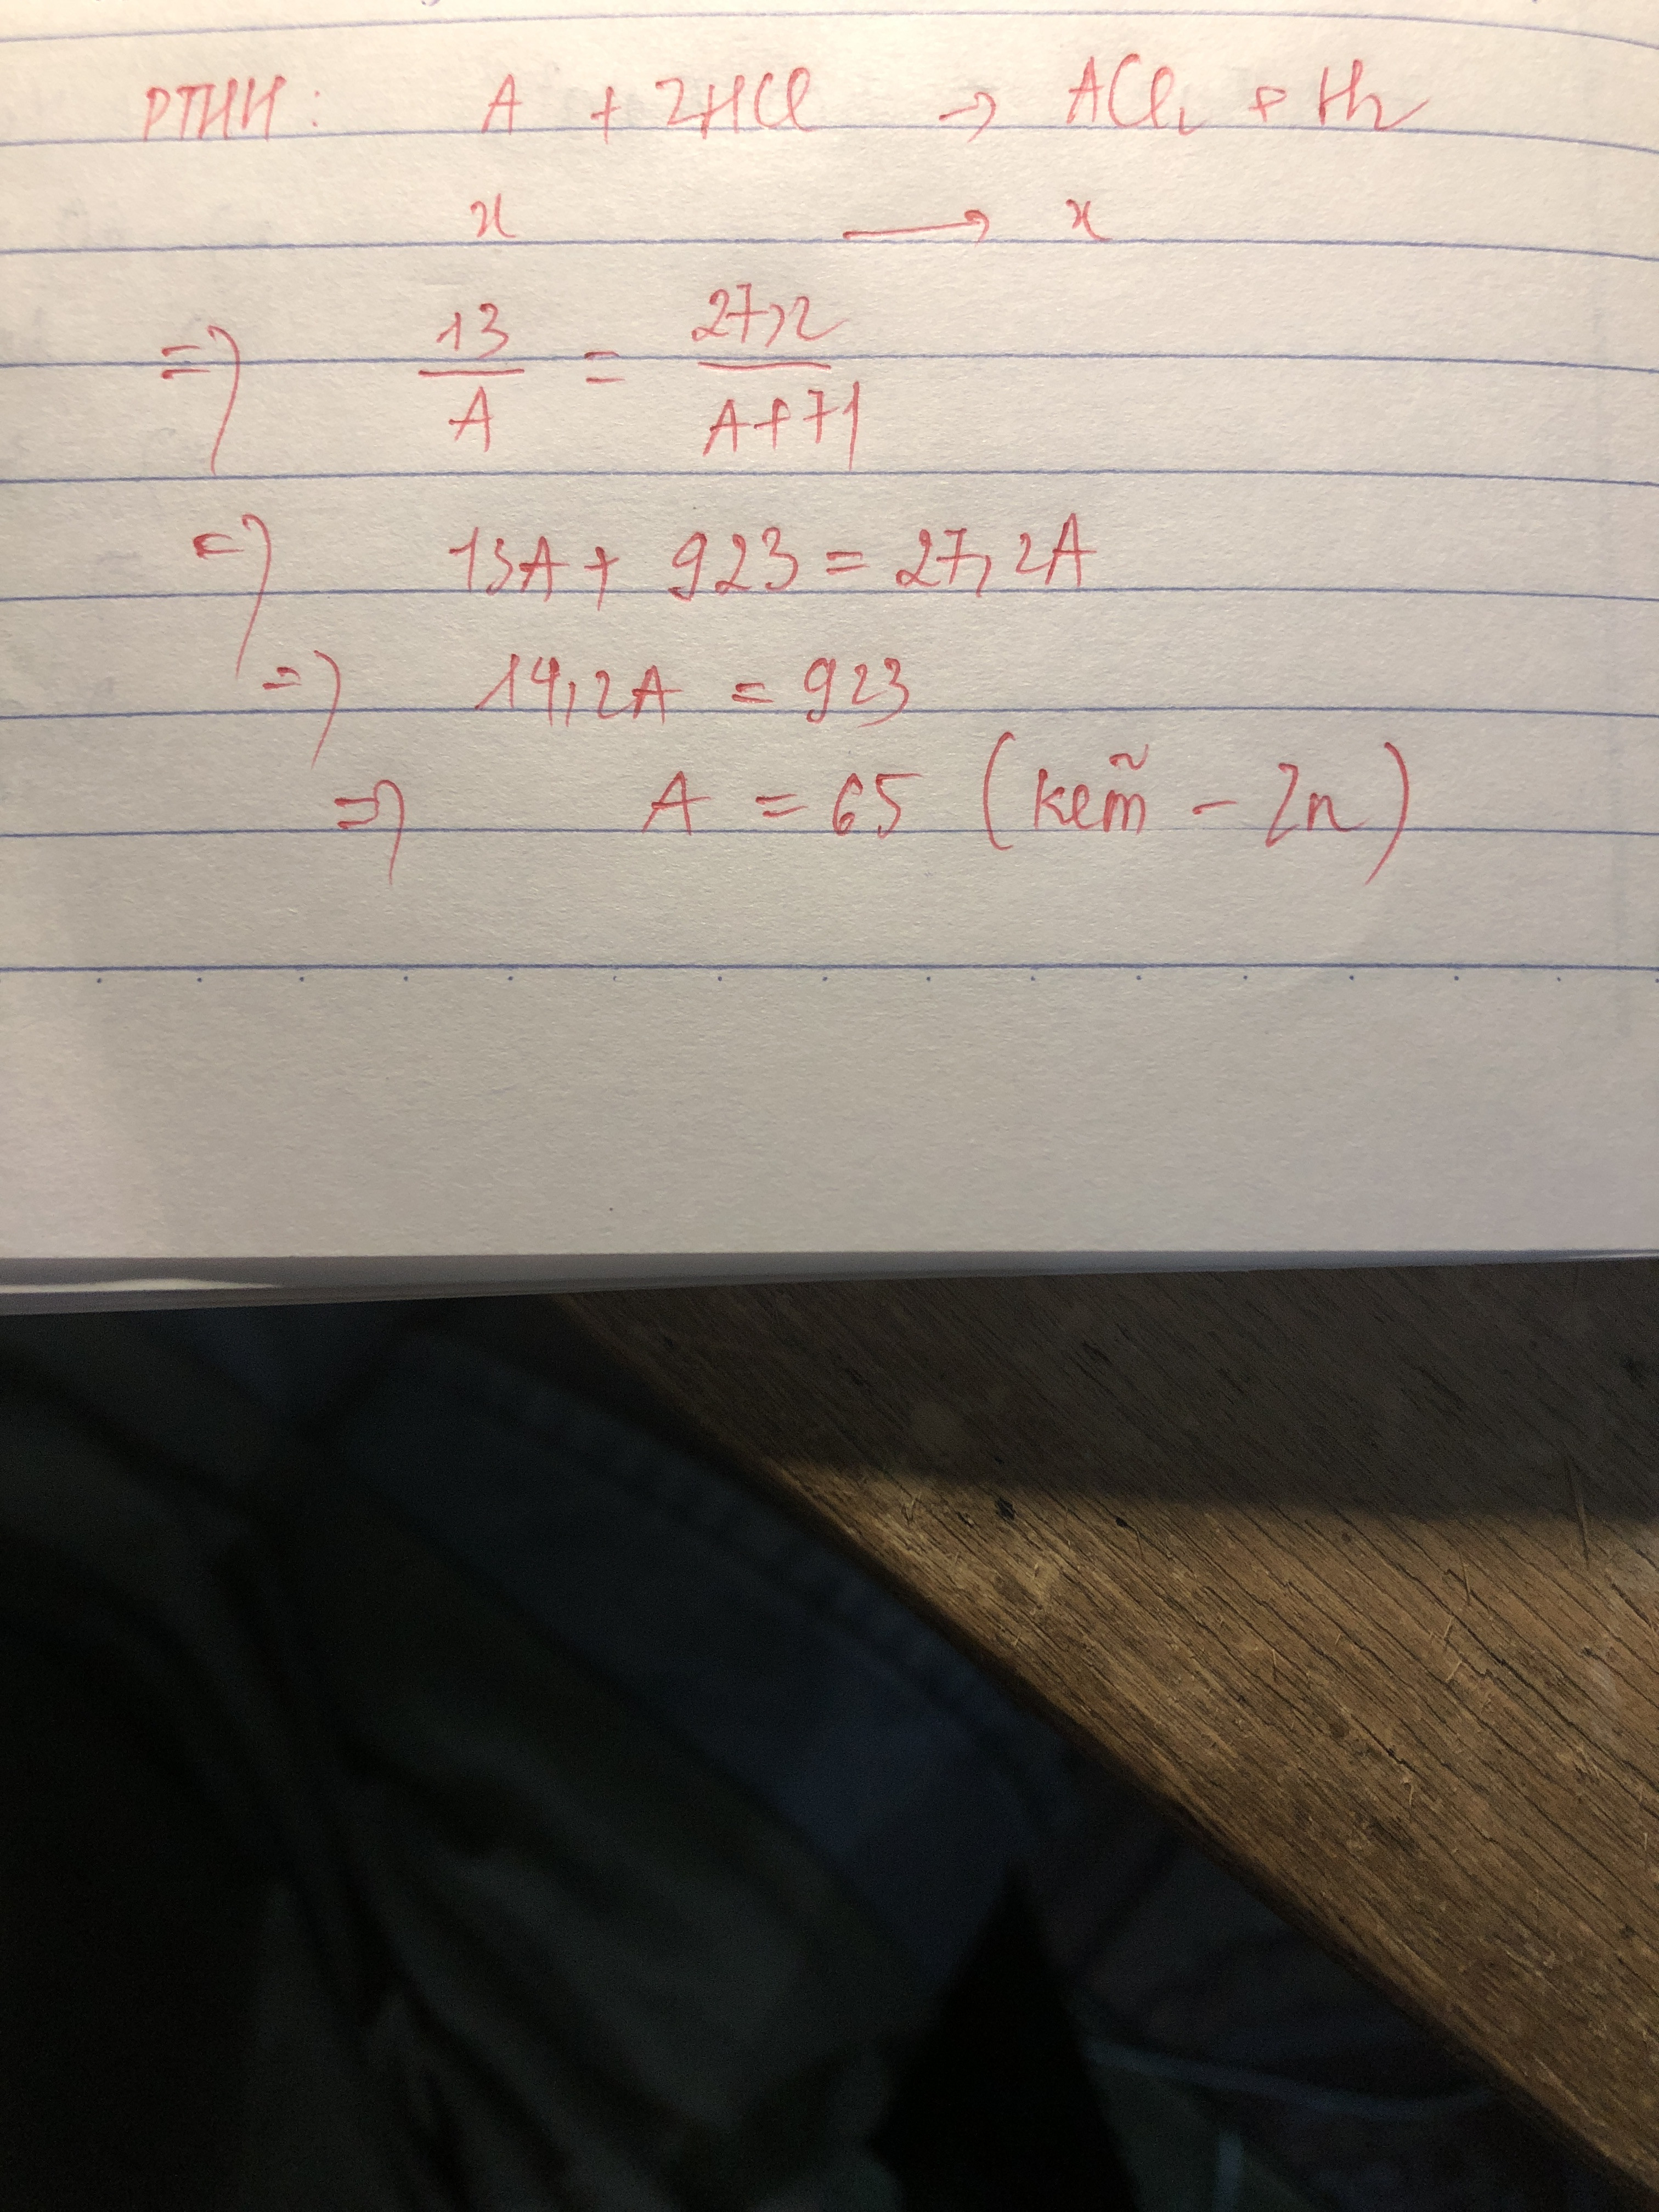 PTHH: A + 2HCl → ACl₂ + H₂
x → x
=> 13/A = 27,2/A+71
=> 13A + 923 = 27,2A
=> 14,2A = 923
=> A = 65 (kẽm - Zn)